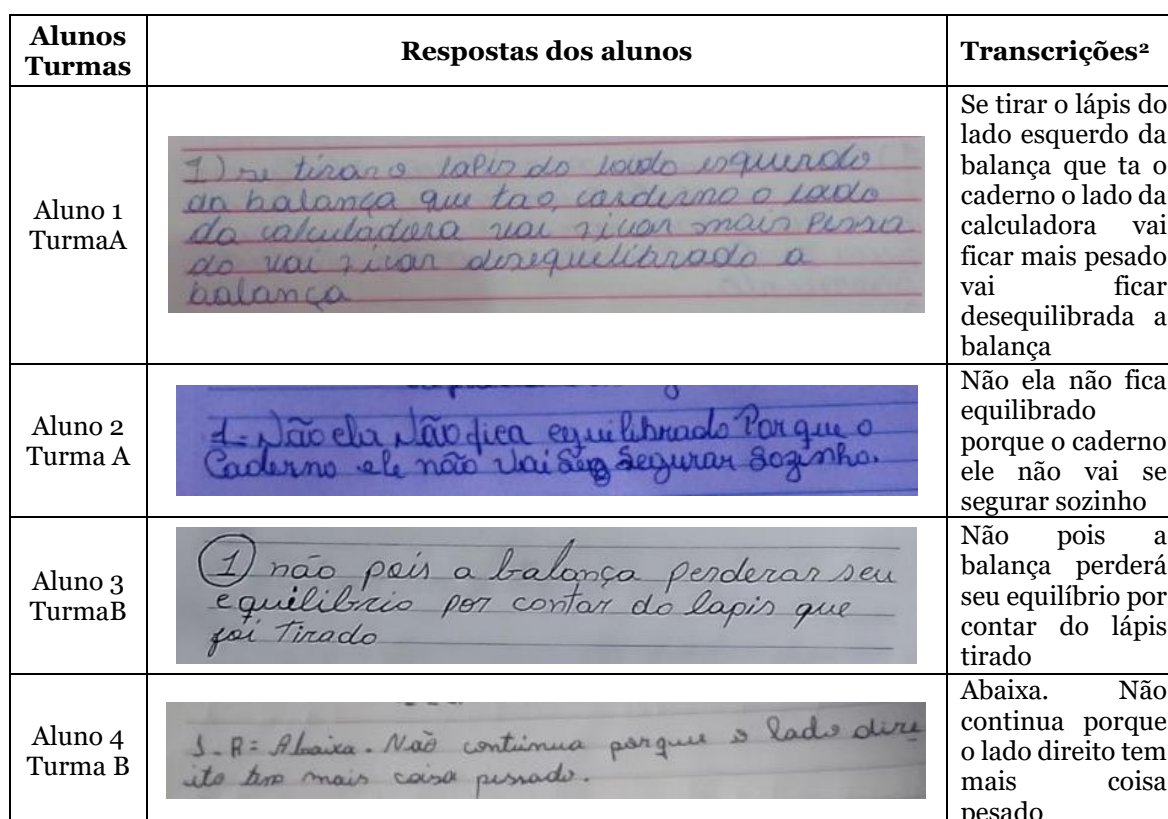 Alunos
Turmas
Respostas dos alunos
Transcrições²
Aluno 1
TurmaA
1) se tirar o lapis do lado esquerdo
da balança que tao, carderno o lado
da calculadora vai ficar mais pessa
do vai ficar desequelibrado a
balança
Se tirar o lápis do
lado esquerdo da
balança que ta o
caderno o lado da
calculadora vai
ficar mais pesado
vai ficar
desequilibrada a
balança
Aluno 2
Turma A
1- Não ela Não fica equilibrado Por que o
Caderno ele não Vai Segurar Sozinho.
Não ela não fica
equilibrado
porque o caderno
ele não vai se
segurar sozinho
Aluno 3
TurmaB
1) não pois a balança perderar seu
equilibrio por contar do lapis que
foi Tirado
Não pois a
balança perderá
seu equilíbrio por
contar do lápis
tirado
Aluno 4
Turma B
1- R= Abaixa. Não continua porque o lado dire
ito tem mais coisa pessado.
Abaixa. Não
continua porque
o lado direito tem
mais coisa
pesado